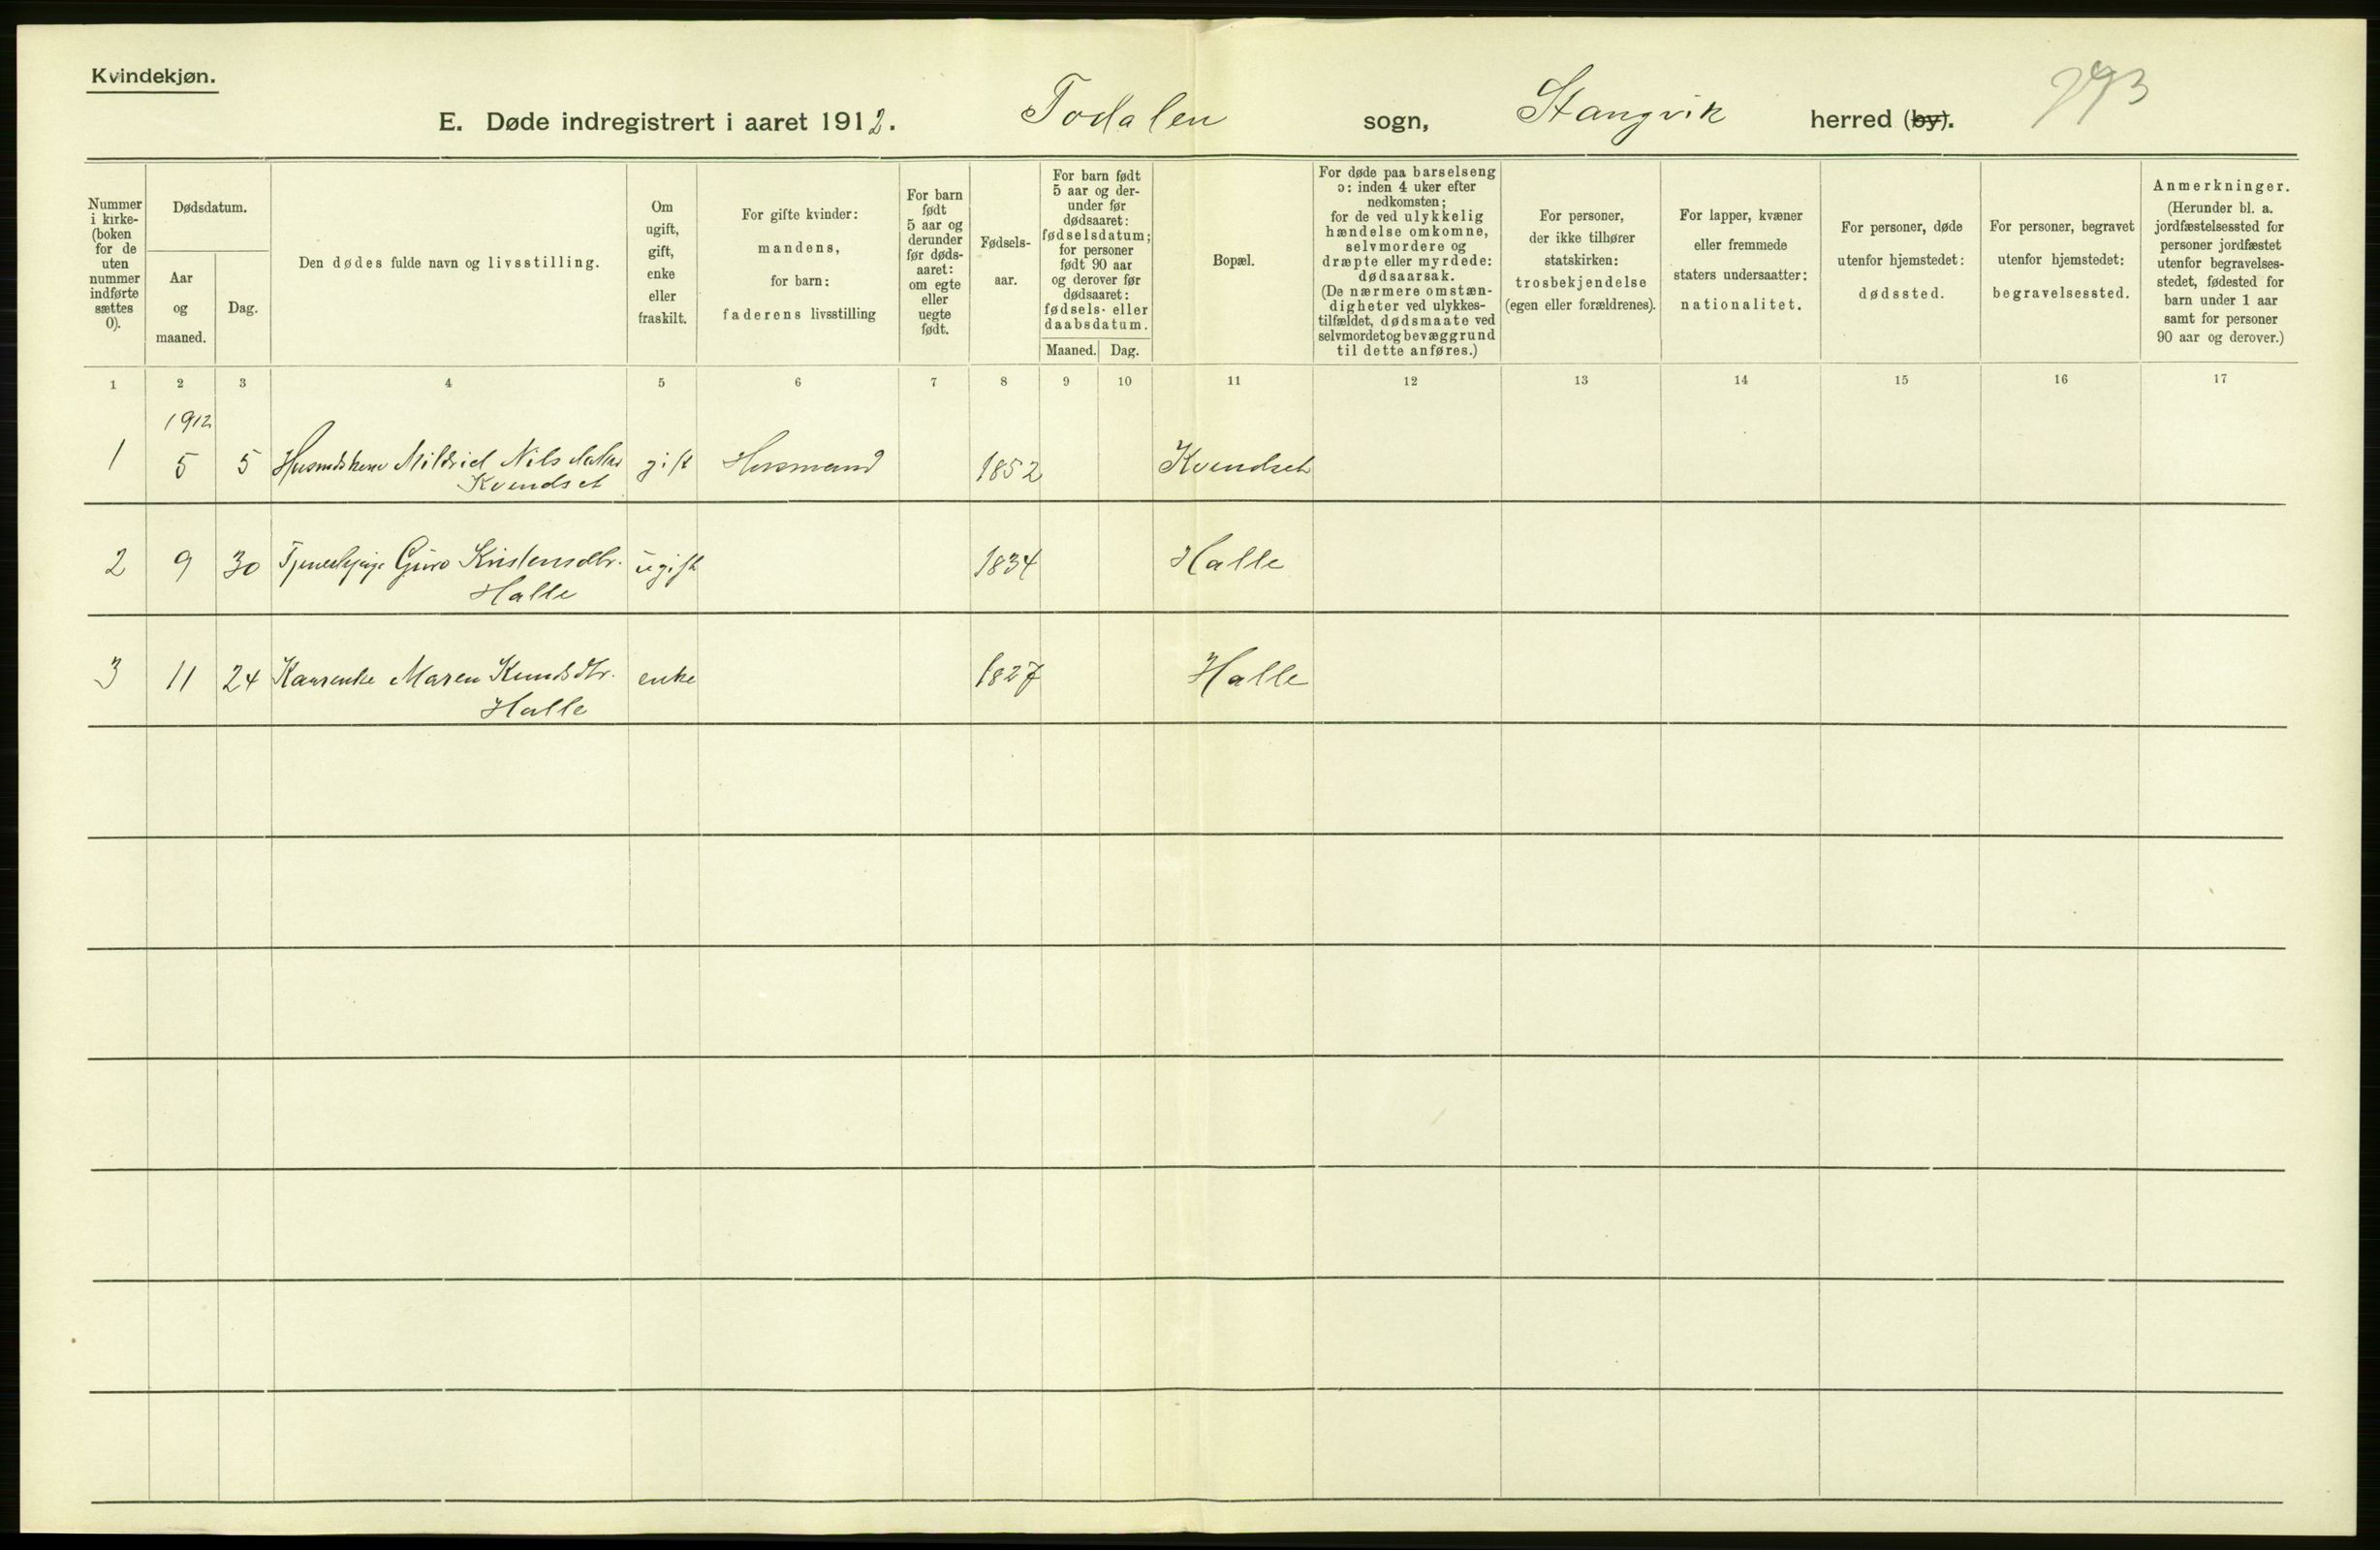 Kvindekjøn.
E. Døde indregistrert i aaret 1912. Todalen sogn, Stangvik herred (by).
Nummer
i kirke-
(boken
for de
uten
nummer
indførte
sættes
0).
Dødsdatum.
Aar
og
maaned.
Dag.
Den dødes fulde navn og livsstilling.
Om
ugift,
gift,
enke
eller
fraskilt.
For gifte kvinder:
mandens,
for barn:
faderens livsstilling
For barn
født
5 aar og
derunder
før døds-
aaret:
om egte
eller
uegte
født.
Fødsels-
aar.
For barn født
5 aar og der-
under før
dødsaaret:
fødselsdatum;
for personer
født 90 aar
og derover før
dødsaaret:
fødsels- eller
daabsdatum.
Maaned. Dag.
Bopæl.
For døde paa barselseng
ɔ: inden 4 uker efter
nedkomsten;
for de ved ulykkelig
hændelse omkomne,
selvmordere og
dræpte eller myrdede:
dødsaarsak.
(De nærmere omstæn-
digheter ved ulykkes-
tilfældet, dødsmaate ved
selvmordet og bevæggrund
til dette anføres.)
For personer,
der ikke tilhører
statskirken:
trosbekjendelse
(egen eller forældrenes).
For lapper, kvæner
eller fremmede
staters undersaatter:
nationalitet.
For personer, døde
utenfor hjemstedet:
dødssted.
For personer, begravet
utenfor hjemstedet:
begravelsessted.
Anmerkninger.
(Herunder bl. a.
jordfæstelsessted for
personer jordfæstet
utenfor begravelses-
stedet, fødested for
barn under 1 aar
samt for personer
90 aar og derover.)
1 2 3 4 5 6 7 8 9 10 11 12 13 14 15 16 17
1912
1 5 5 Mildrid Nils gift Husmand 1852 Kvendset
Kvendset
2 9 30 Guro Kristensdtr. ugift 1834 Halle
Halle
3 11 24 Kaarenke Maren Knudsdtr. enke 1827 Halle
Halle